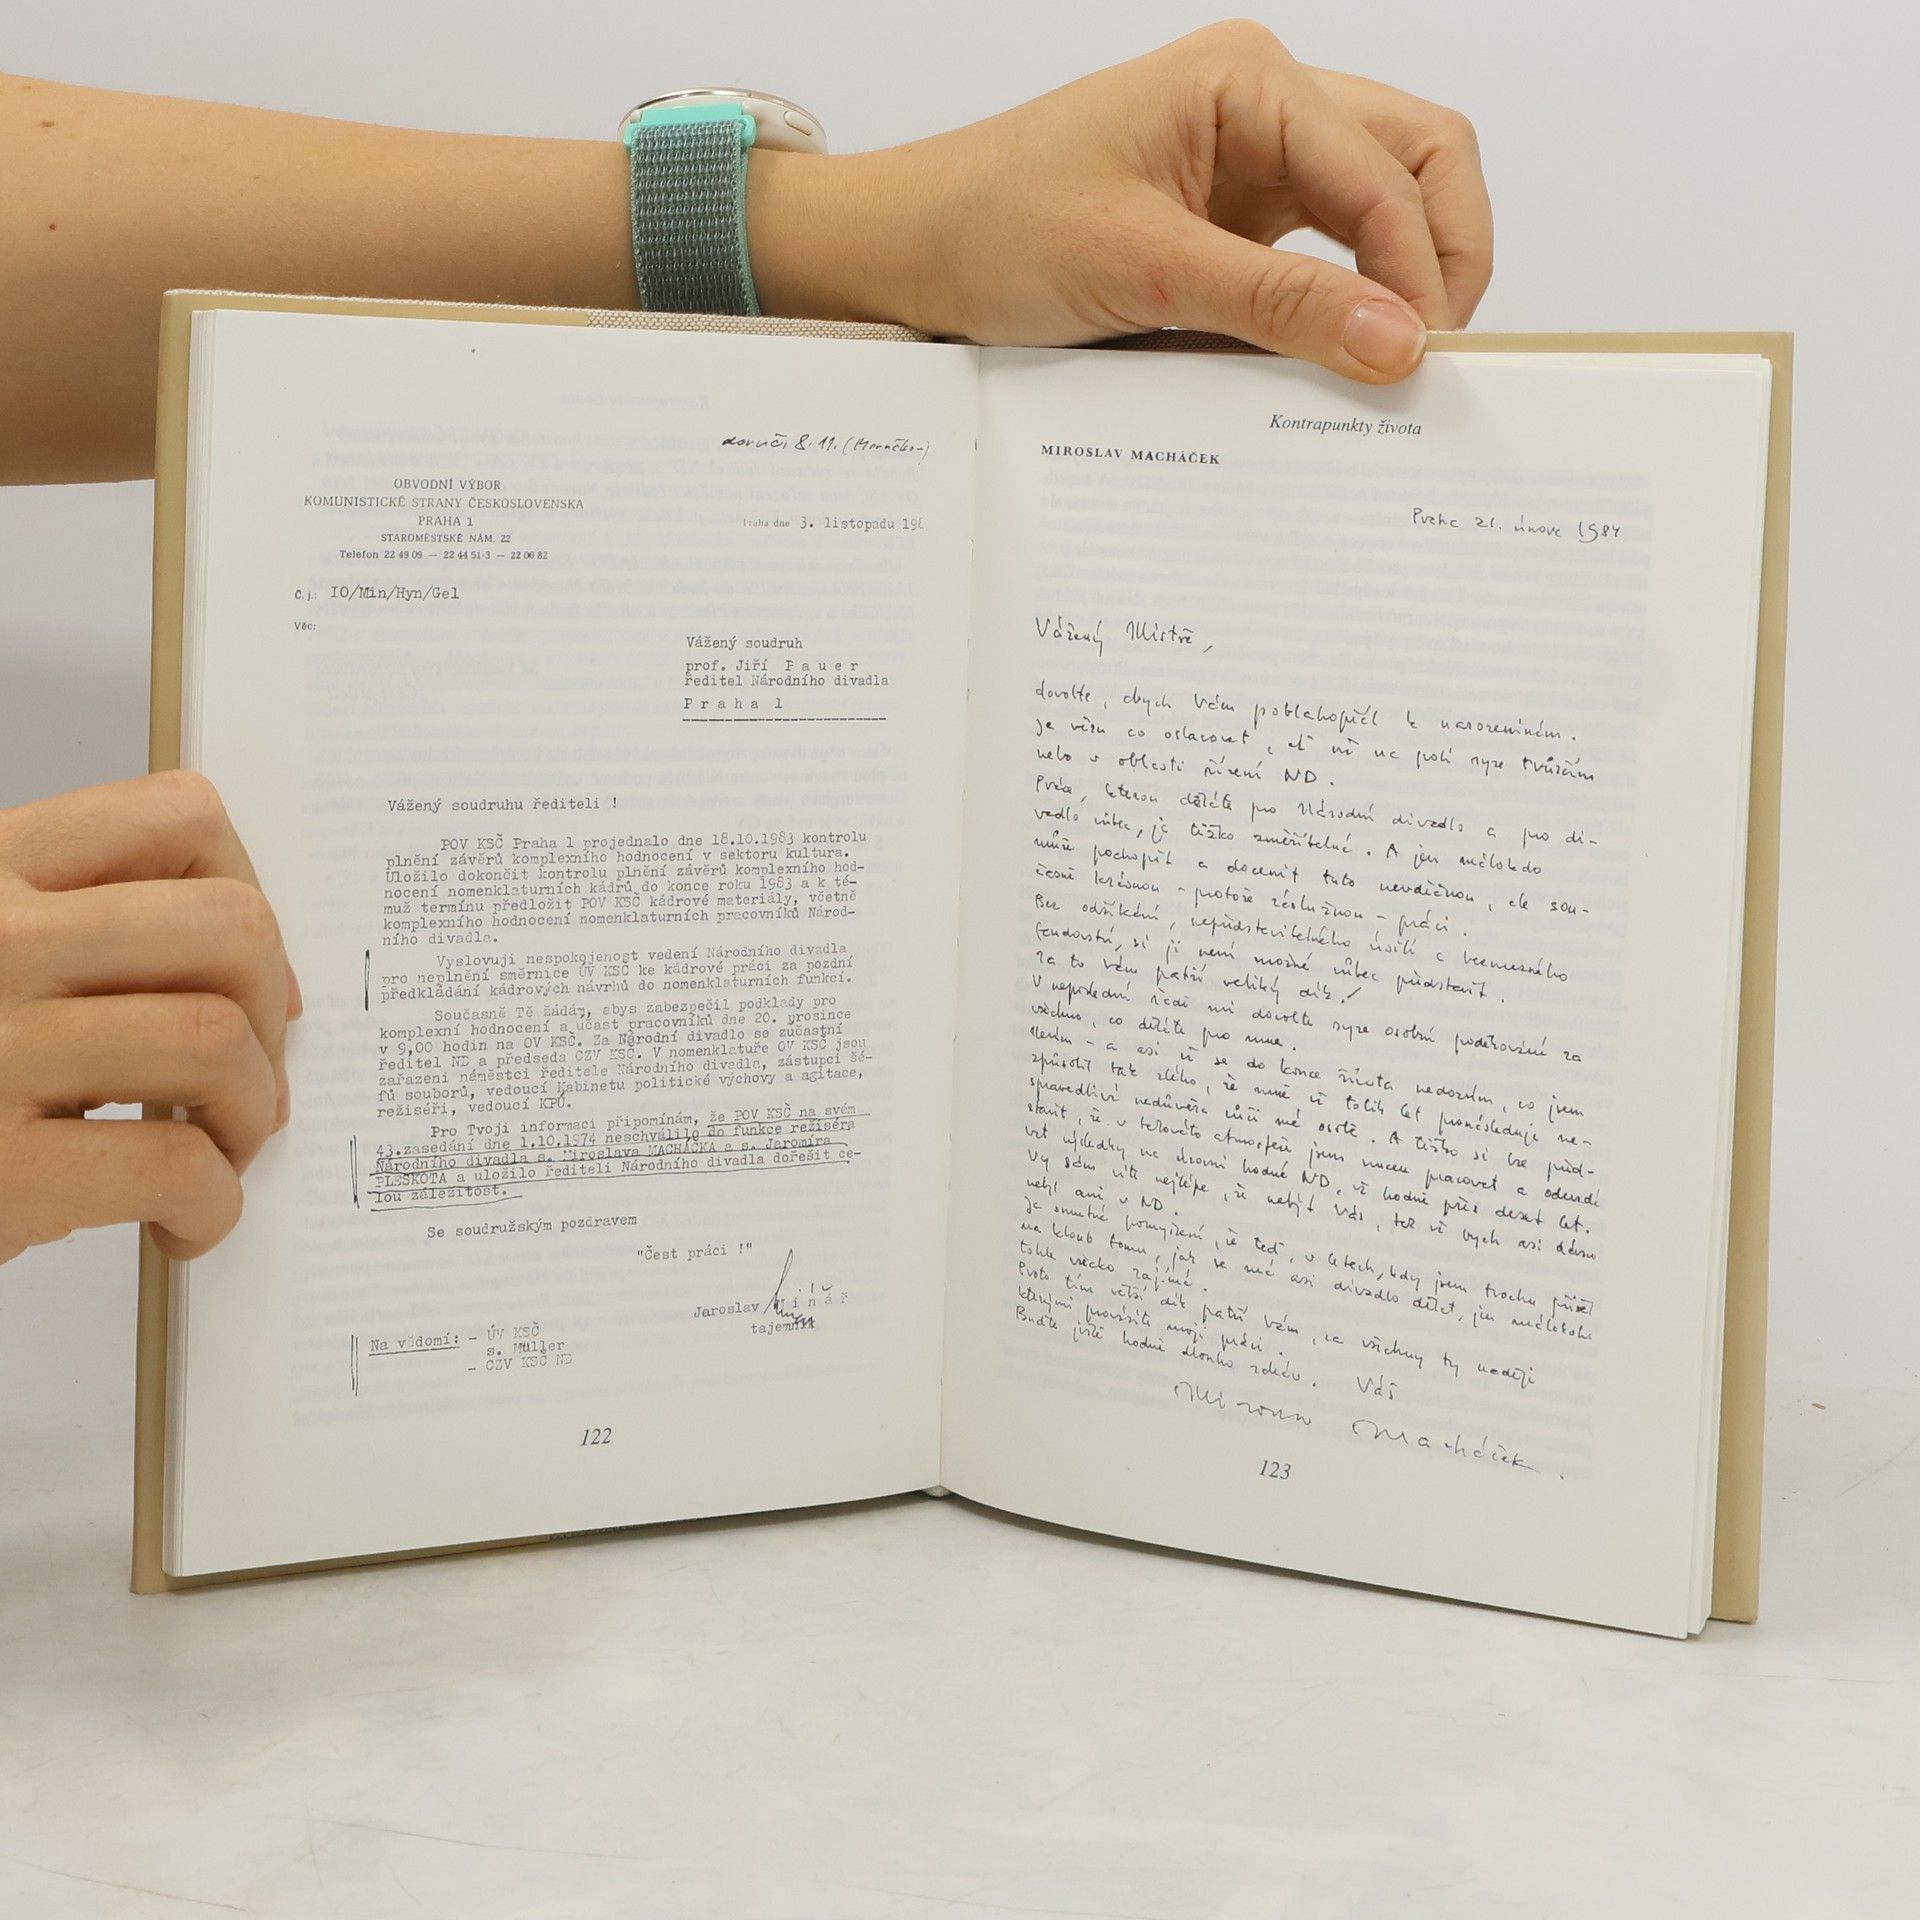 doruč. 8. 11.
OBVODNÍ VÝBOR
KOMUNISTICKÉ STRANY ČESKOSLOVENSKA
PRAHA 1
STAROMĚSTSKÉ NÁM. 22
Telefon 22 49 09 — 22 44 51-3 — 22 06 82
Praha dne 3. listopadu 198
Č. j.: IO/Min/Hyn/Gel
Věc:
Vážený soudruh
prof. Jiří P a u e r
ředitel Národního divadla
P r a h a 1
Vážený soudruhu řediteli !
POV KSČ Praha 1 projednalo dne 18.10.1983 kontrolu
plnění závěrů komplexního hodnocení v sektoru kultura.
Uložilo dokončit kontrolu plnění závěrů komplexního hod-
nocení nomenklaturních kádrů do konce roku 1983 a k té-
muž termínu předložit POV KSČ kádrové materiály, včetně
komplexního hodnocení nomenklaturních pracovníků Národ-
ního divadla.
Vyslovuji nespokojenost vedení Národního divadla
pro neplnění směrnice ÚV KSČ ke kádrové práci za pozdní
předkládání kádrových návrhů do nomenklaturních funkcí.
Současně Tě žádám, abys zabezpečil podklady pro
komplexní hodnocení a účast pracovníků dne 20. prosince
v 9,00 hodin na OV KSČ. Za Národní divadlo se zúčastní
ředitel ND a předseda CZV KSČ. V nomenklatuře OV KSČ jsou
zařazeni náměstci ředitele Národního divadla, zástupci šé-
fů souborů, vedoucí Kabinetu politické výchovy a agitace,
režiséři, vedoucí KPÚ.
Pro Tvoji informaci připomínám, že POV KSČ na svém
43.zasedání dne 1.10.1974 neschválilo do funkce režiséra
Národního divadla s. Miroslava MACHÁČKA a s. Jaromíra
PLESKOTA a uložilo řediteli Národního divadla dořešit ce-
lou záležitost.
Se soudružským pozdravem
"Čest práci !"
Jaroslav M i n á ř
tajemník
Na vědomí: - ÚV KSČ
s. Müller
- CZV KSČ ND
122
Kontrapunkty života
MIROSLAV MACHÁČEK
Praha 21. února 1984
Vážený Mistře,
dovolte, abych Vám poblahopřál k narozeninám.
Je věru co oslavovat, ať už na poli ryze tvůrčím
nebo v oblasti řízení ND.
Práce, kterou děláte pro Národní divadlo a pro di-
vadlo vůbec, je těžko změřitelná. A jen málokdo
může pochopit a docenit tuto nevděčnou, ale sou-
časně krásnou - protože záslužnou - práci.
Bez odříkání, nepředstavitelného úsilí a bezmezného
fandovství, si ji není možné vůbec představit.
Za to vám patří veliký dík!
V neposlední řadě mi dovolte ryze osobní poděkování za
všechno, co děláte pro mne.
Nevím - a asi už se do konce života nedozvím, co jsem
způsobil tak zlého, že mně už tolik let pronásleduje ne-
spravedlivá nedůvěra vůči mé osobě. A těžko si lze před-
stavit, že v takovéto atmosféře jsem musel pracovat a odevzdá
vat výsledky na úrovni hodné ND, už hodně přes deset let.
Vy sám víte nejlépe, že nebýt Vás, tak už bych asi dávno
nebyl ani v ND.
Je smutné pomyšlení, že teď, v letech, kdy jsem trochu přišel
na kloub tomu, jak se má asi divadlo dělat, jen málokoho
tohle všecko zajímá.
Proto tím větší dík patří Vám, za všechny ty naděje
kterými provázíte moji práci.
Buďte ještě hodně dlouho zdráv. Váš
Miroslav Macháček.
123